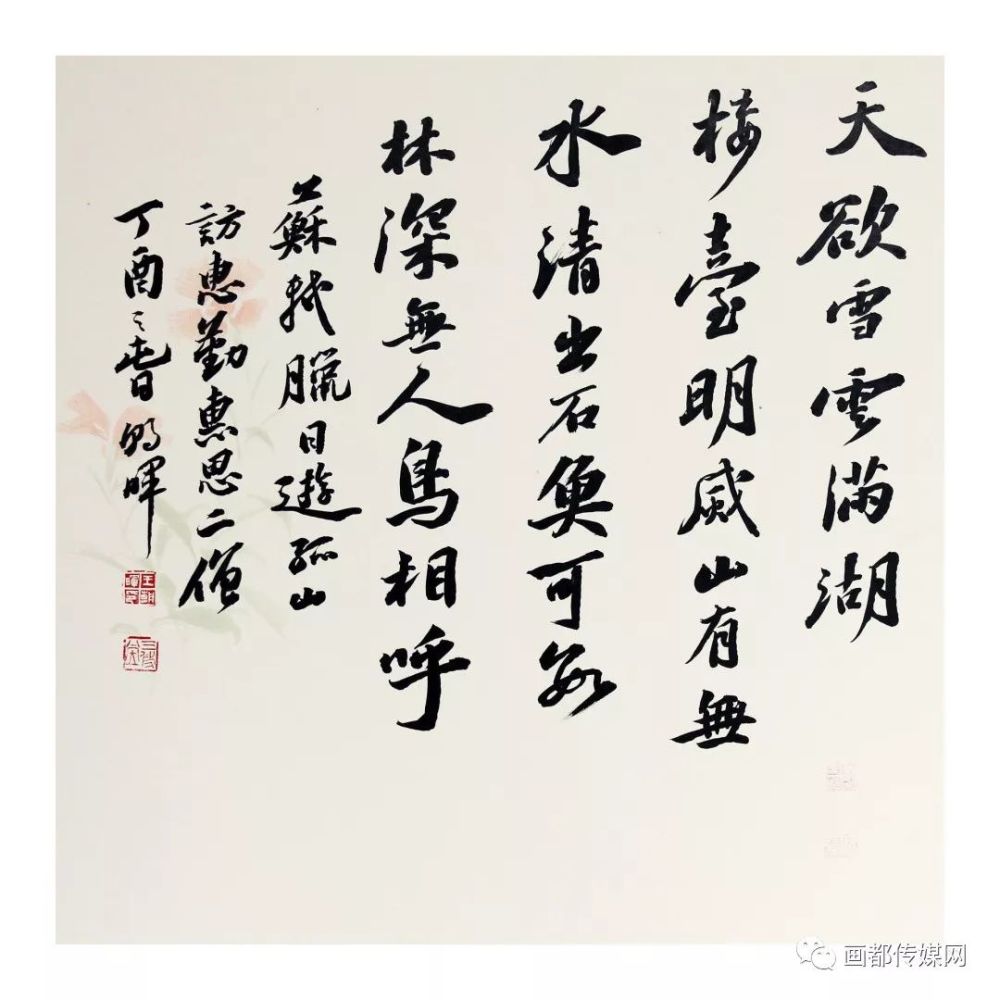 天欲雪雲滿湖
樓臺明滅山有無
水清出石魚可數
林深無人鳥相呼
蘇軾臘日遊孤山
訪惠勤惠思二僧
丁酉之春朝暉
王朝暉印
画都传媒网